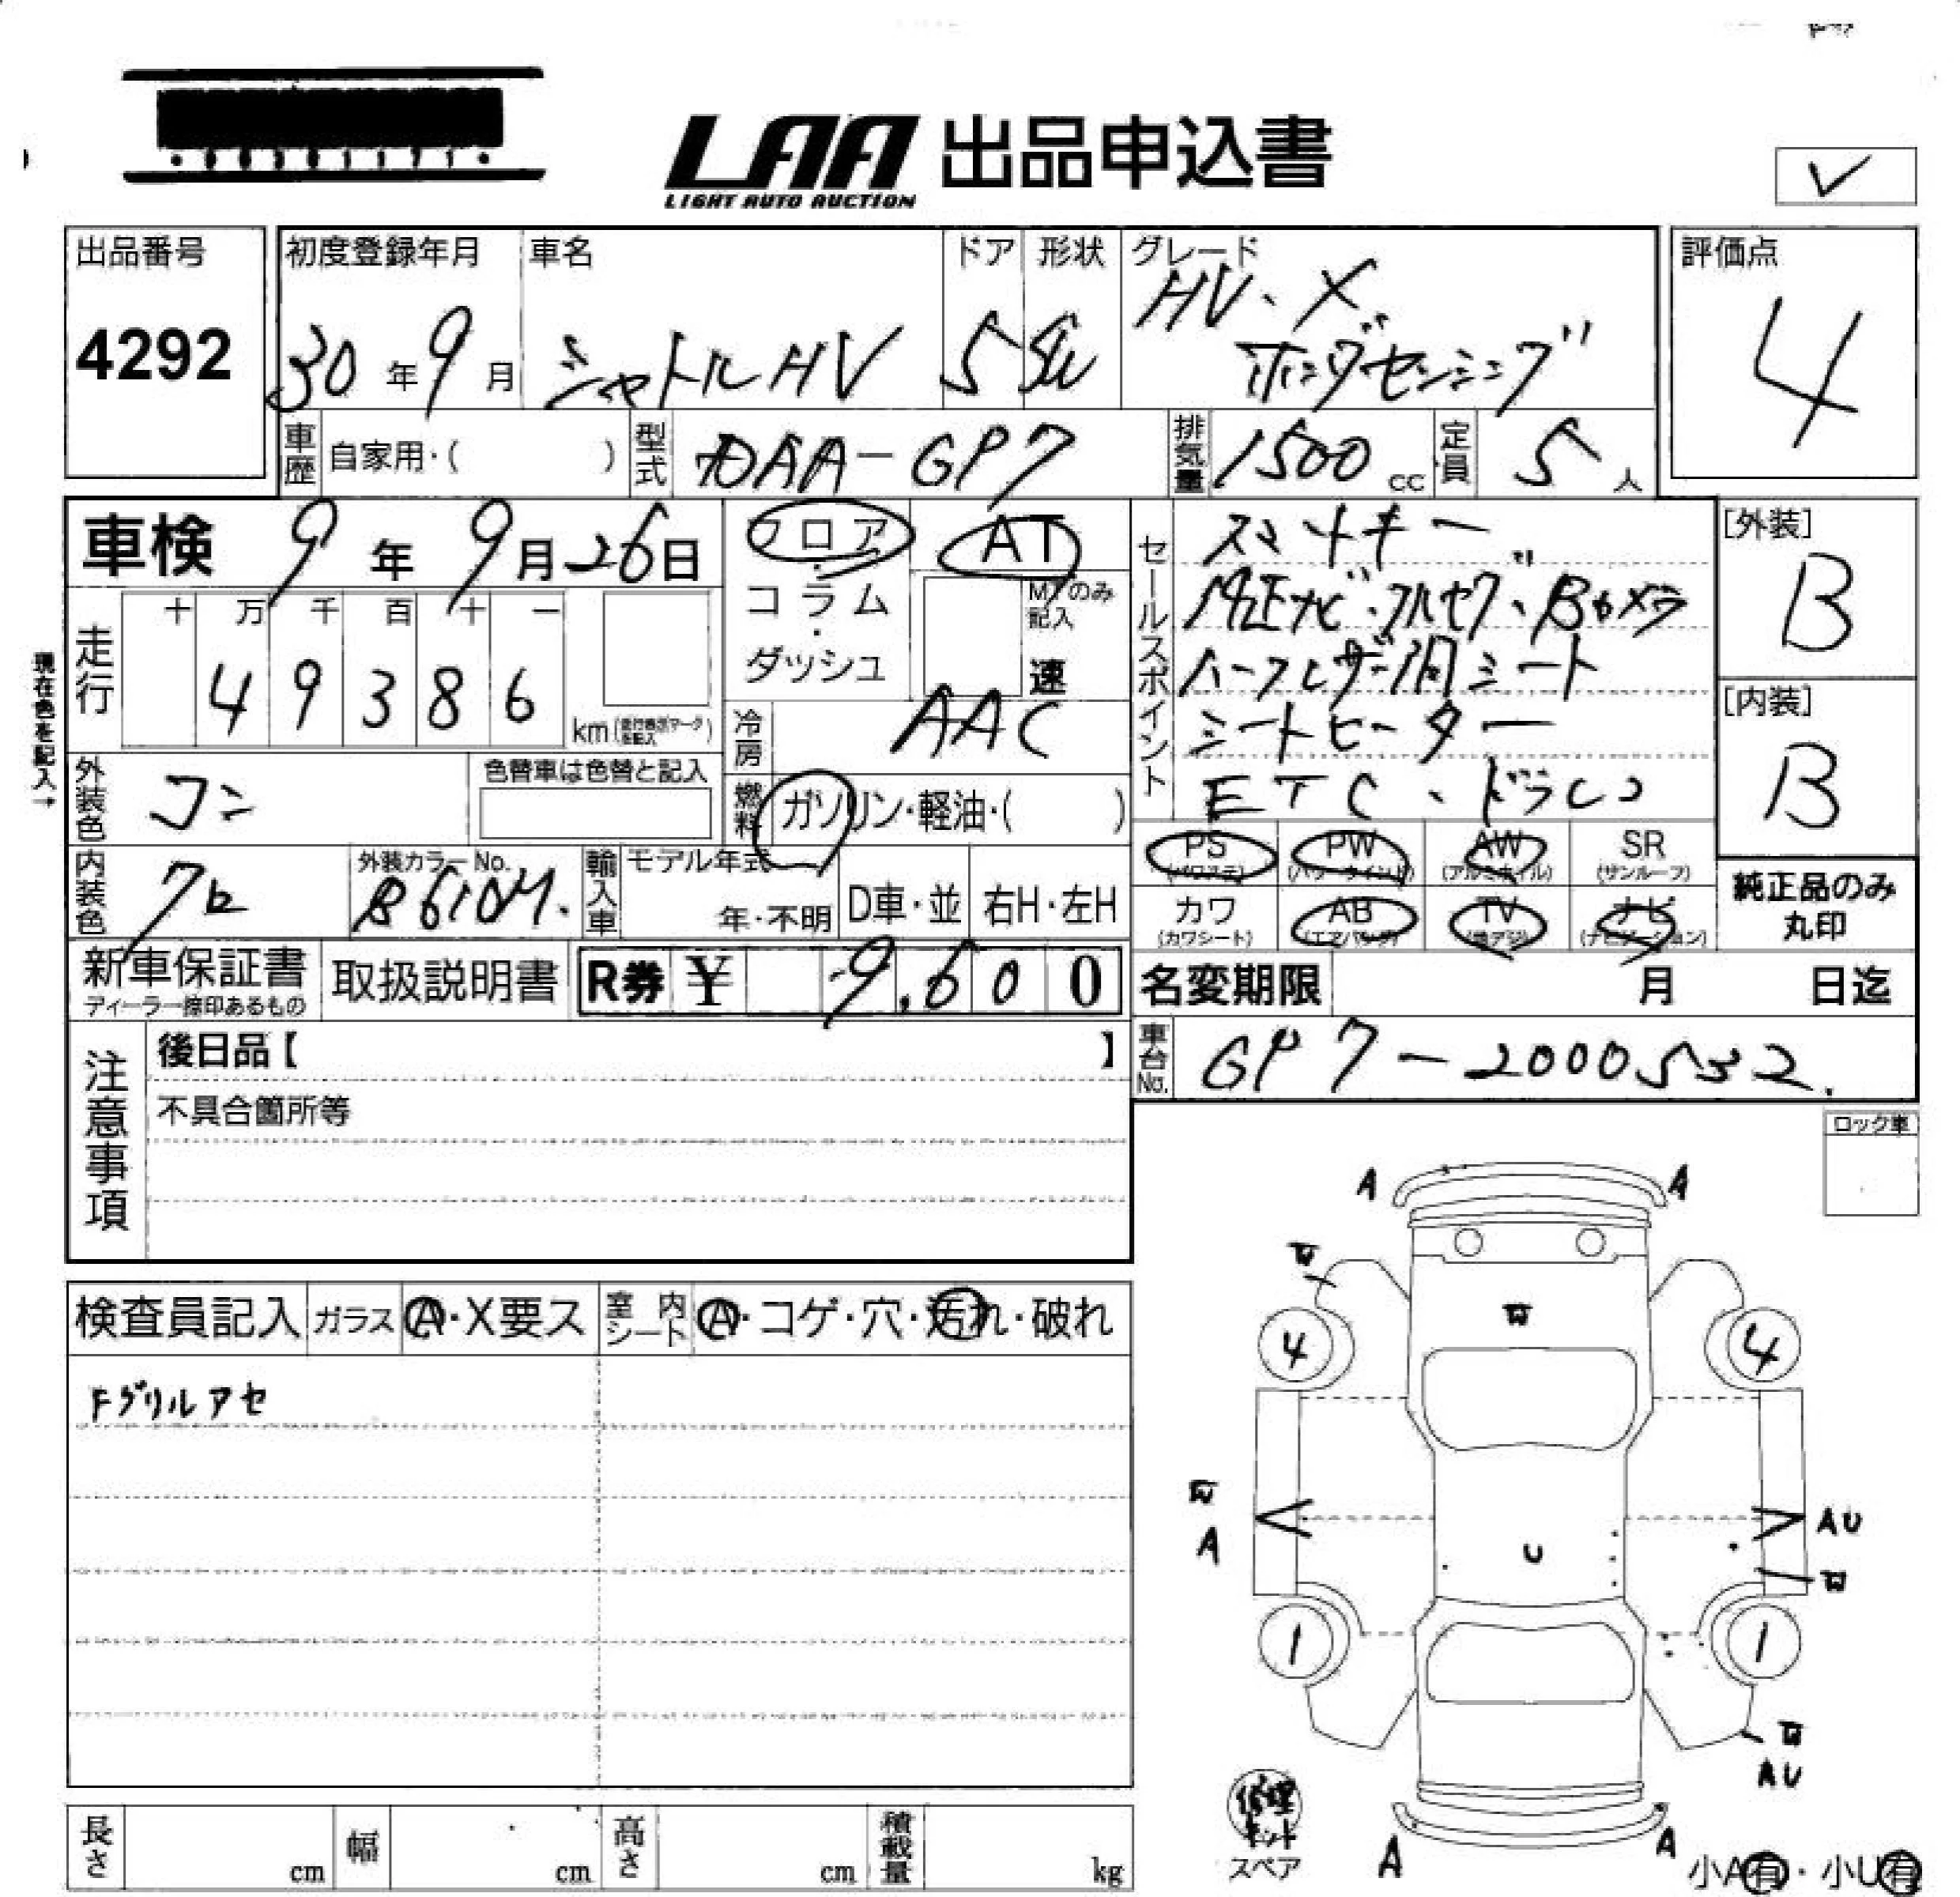 LAA 出品申込書
LIGHT AUTO AUCTION
✓
出品番号
4292
初度登録年月
30年9月
車名
シャトルHV
ドア
5
形状
SW
グレード
HV・X
ホンダセンシング
評価点
4
車歴 自家用・( )
型式 DAA-GP7
排気量 1500 cc
定員 5人
車検 9年9月26日
フロア・コラム・ダッシュ
AT
MTのみ記入
速
走行
十 万 千 百 十 一
4 9 3 8 6
km
現在色を記入→
冷房 AAC
外装色 コン
色替車は色替と記入
燃料 ガソリン・軽油・( )
内装色 クロ
外装カラーNo.
B610M.
輸入車
モデル年式
年・不明
D車・並
右H・左H
セールスポイント
スマートキー
純正ナビ・フルセグ・Bカメラ
ハーフレザー調シート
シートヒーター
ETC、ドラレコ
PS (パワステ)
PW (パワーウインド)
AW (アルミホイル)
SR (サンルーフ)
カワ (カワシート)
AB (エアバッグ)
TV (地デジ)
ナビ (ナビゲーション)
[外装]
B
[内装]
B
純正品のみ
丸印
新車保証書
ディーラー捺印あるもの
取扱説明書
R券 ¥ 9,600
名変期限 月 日迄
車台No. GP7-2000532.
注意事項
後日品【 】
不具合箇所等
ロック車
検査員記入
ガラス A・X要ス
室内シート A・コゲ・穴・汚れ・破れ
Fグリルアセ
A A
W
W
4 4
W
A
AU
U
W
1 1
W
AU
修理キット
スペア
A A
小A有・小U有
長さ cm
幅 cm
高さ cm
積載量 kg